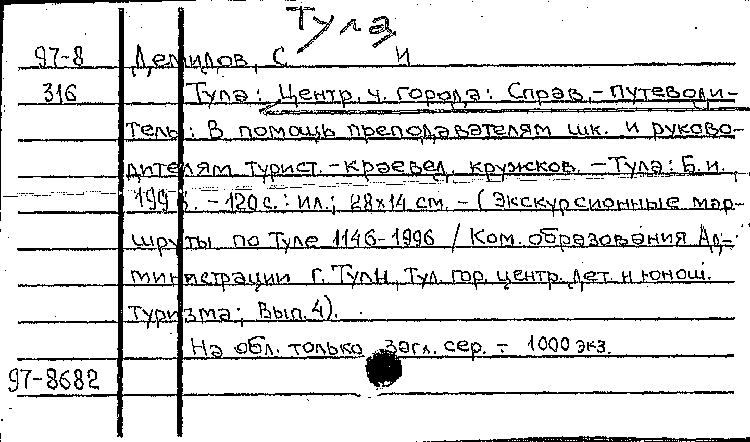 Тула
97-8 Демидов, С И
316 Тула: Центр. ч. города: Справ.-путеводи-
тель: В помощь преподавателям шк. и руково-
дителям турист.-краевед. кружков. – Тула: Б.и.,
199 . – 120 с.: ил.; 28х14 см. – (Экскурсионные мар-
шруты по Туле 1146-1996 / Ком. образования Ад-
министрации г. Тулы, Тул. гор. центр. дет. и юнош.
туризма; Вып. 4).
На обл. только загл. сер. – 1000 экз.
97-8682